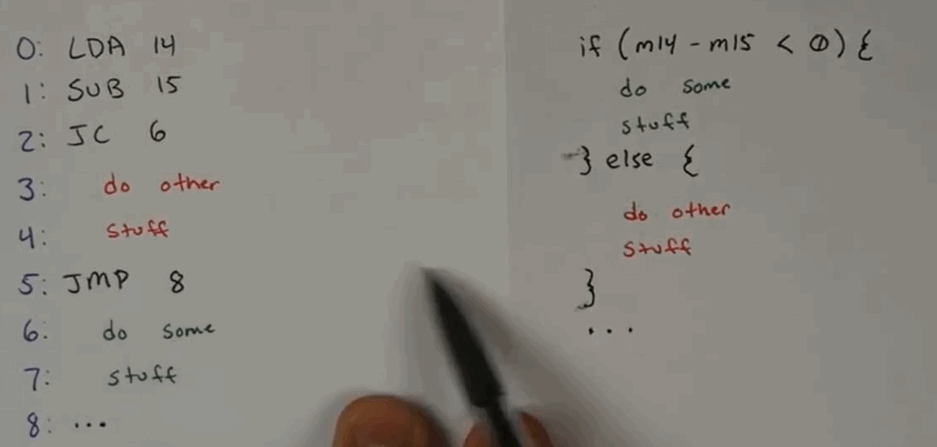 0: LDA 14
1: SUB 15
2: JC 6
3: do other
4: stuff
5: JMP 8
6: do some
7: stuff
8: ...
if (m14 - m15 < 0) {
do some
stuff
} else {
do other
stuff
}
...